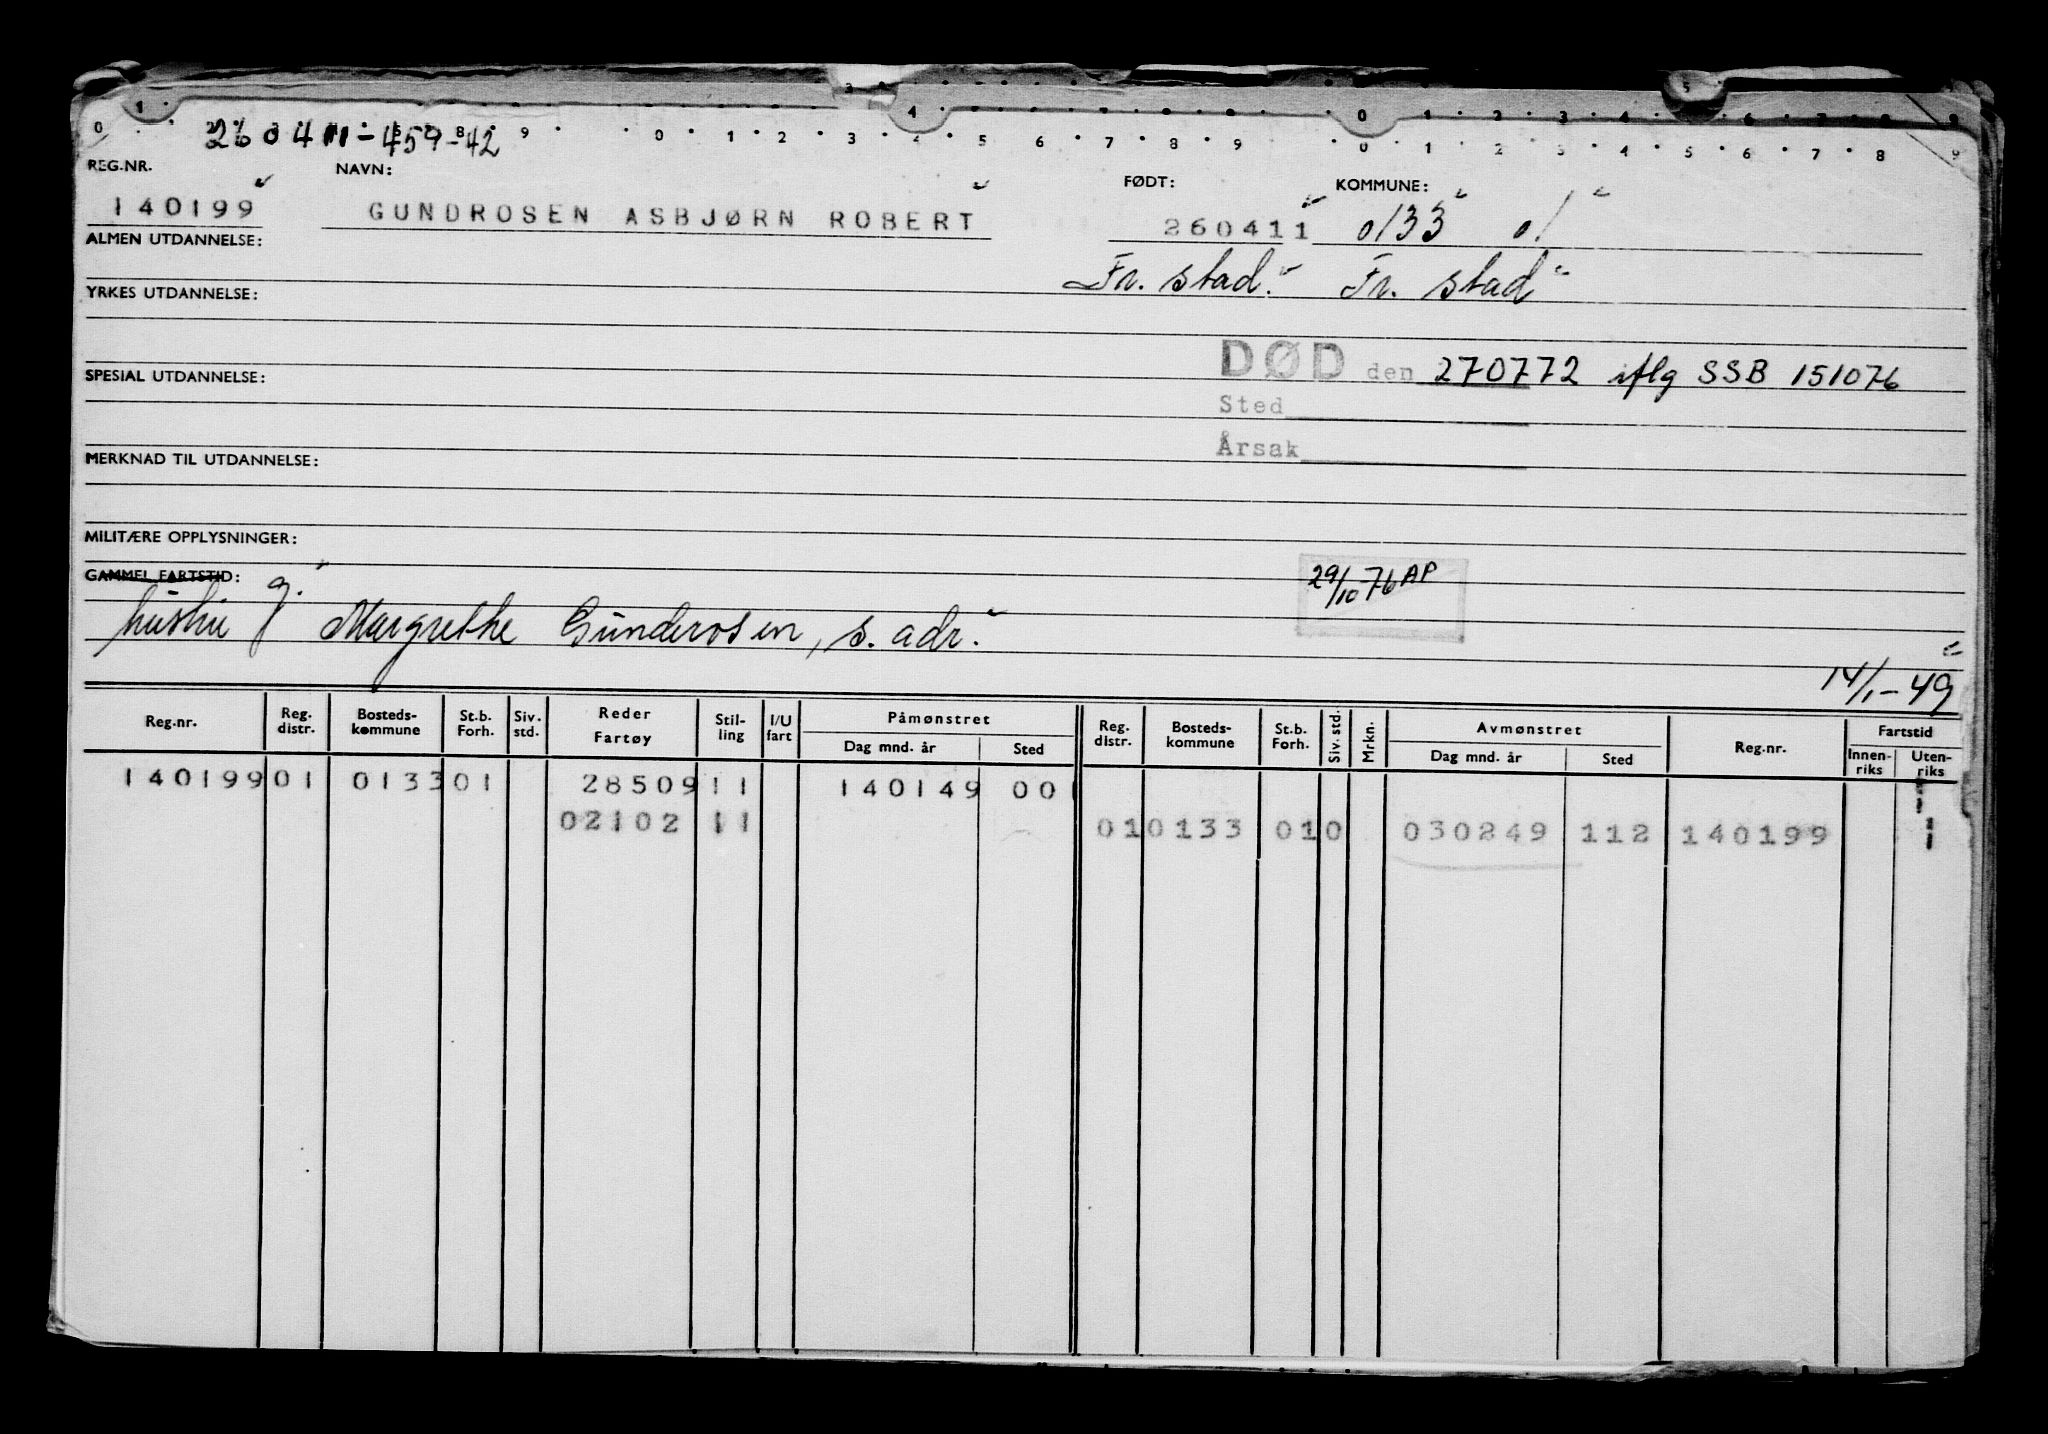 260411-459-42
REG.NR. NAVN: FØDT: KOMMUNE:
140199 GUNDROSEN ASBJØRN ROBERT 260411 0133 01
ALMEN UTDANNELSE: Fr. stad. Fr. stad
YRKES UTDANNELSE:
DØD den 270772 iflg SSB 151076
SPESIAL UTDANNELSE:
Sted
Årsak
MERKNAD TIL UTDANNELSE:
MILITÆRE OPPLYSNINGER:
GAMMEL FARTSTID: 29/10-76 AP
hustru g. Margrethe Gunderosen, s. adr.
14/1-49
Reg.nr. Reg. distr. Bosteds-kommune St.b. Forh. Siv. std. Reder Fartøy Stil-ling I/U fart Påmønstret Dag mnd. år Sted Reg. distr. Bosteds-kommune St.b. Forh. Siv. std. Mrkn. Avmønstret Dag mnd. år Sted Reg.nr. Fartstid Innen-riks Uten-riks
140199 01 0133 01 28509 11 140149 001
02102 11 01 0133 01 0 030249 112 140199 1